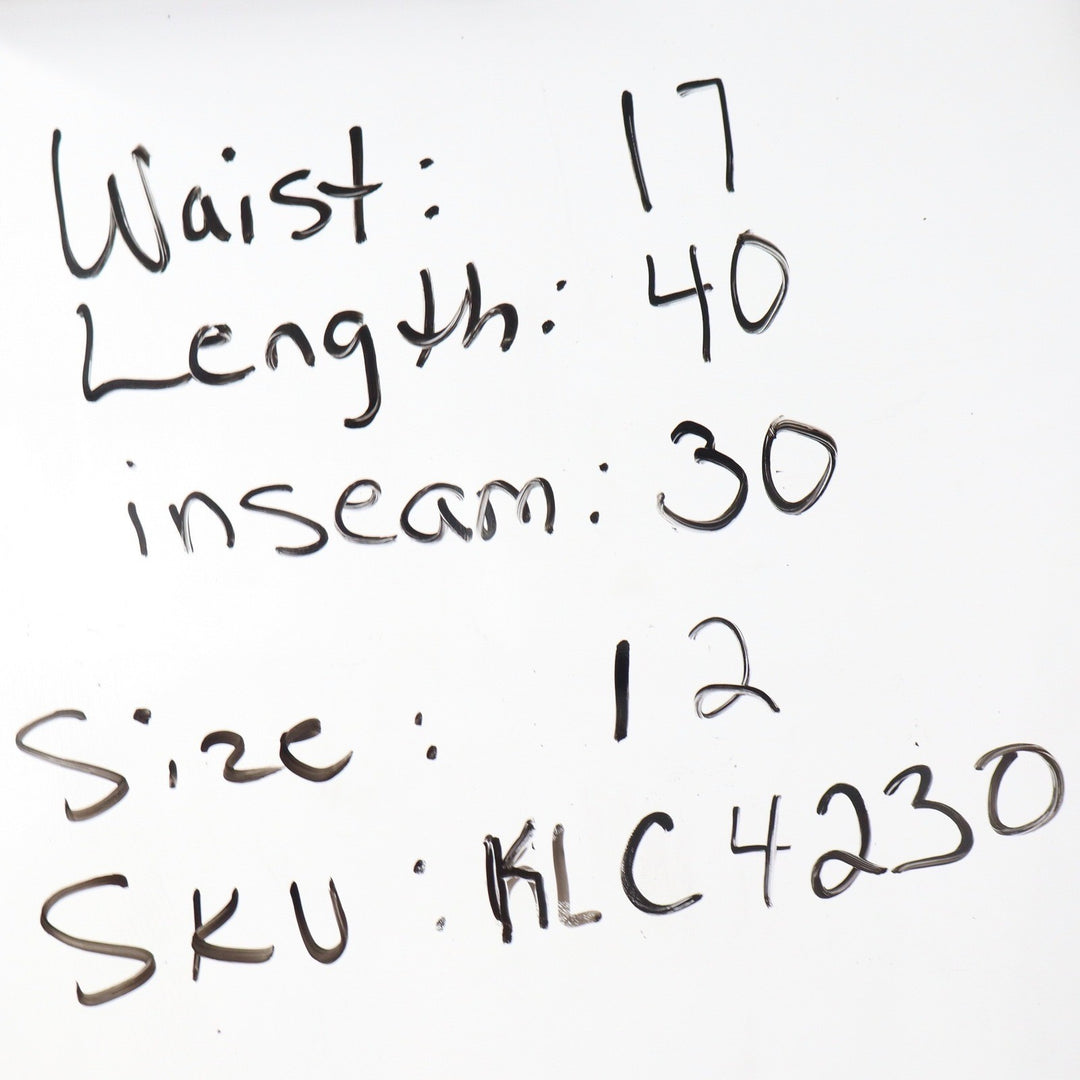 Waist: 17
Length: 40
inseam: 30
Size: 12
SKU: KLC4230